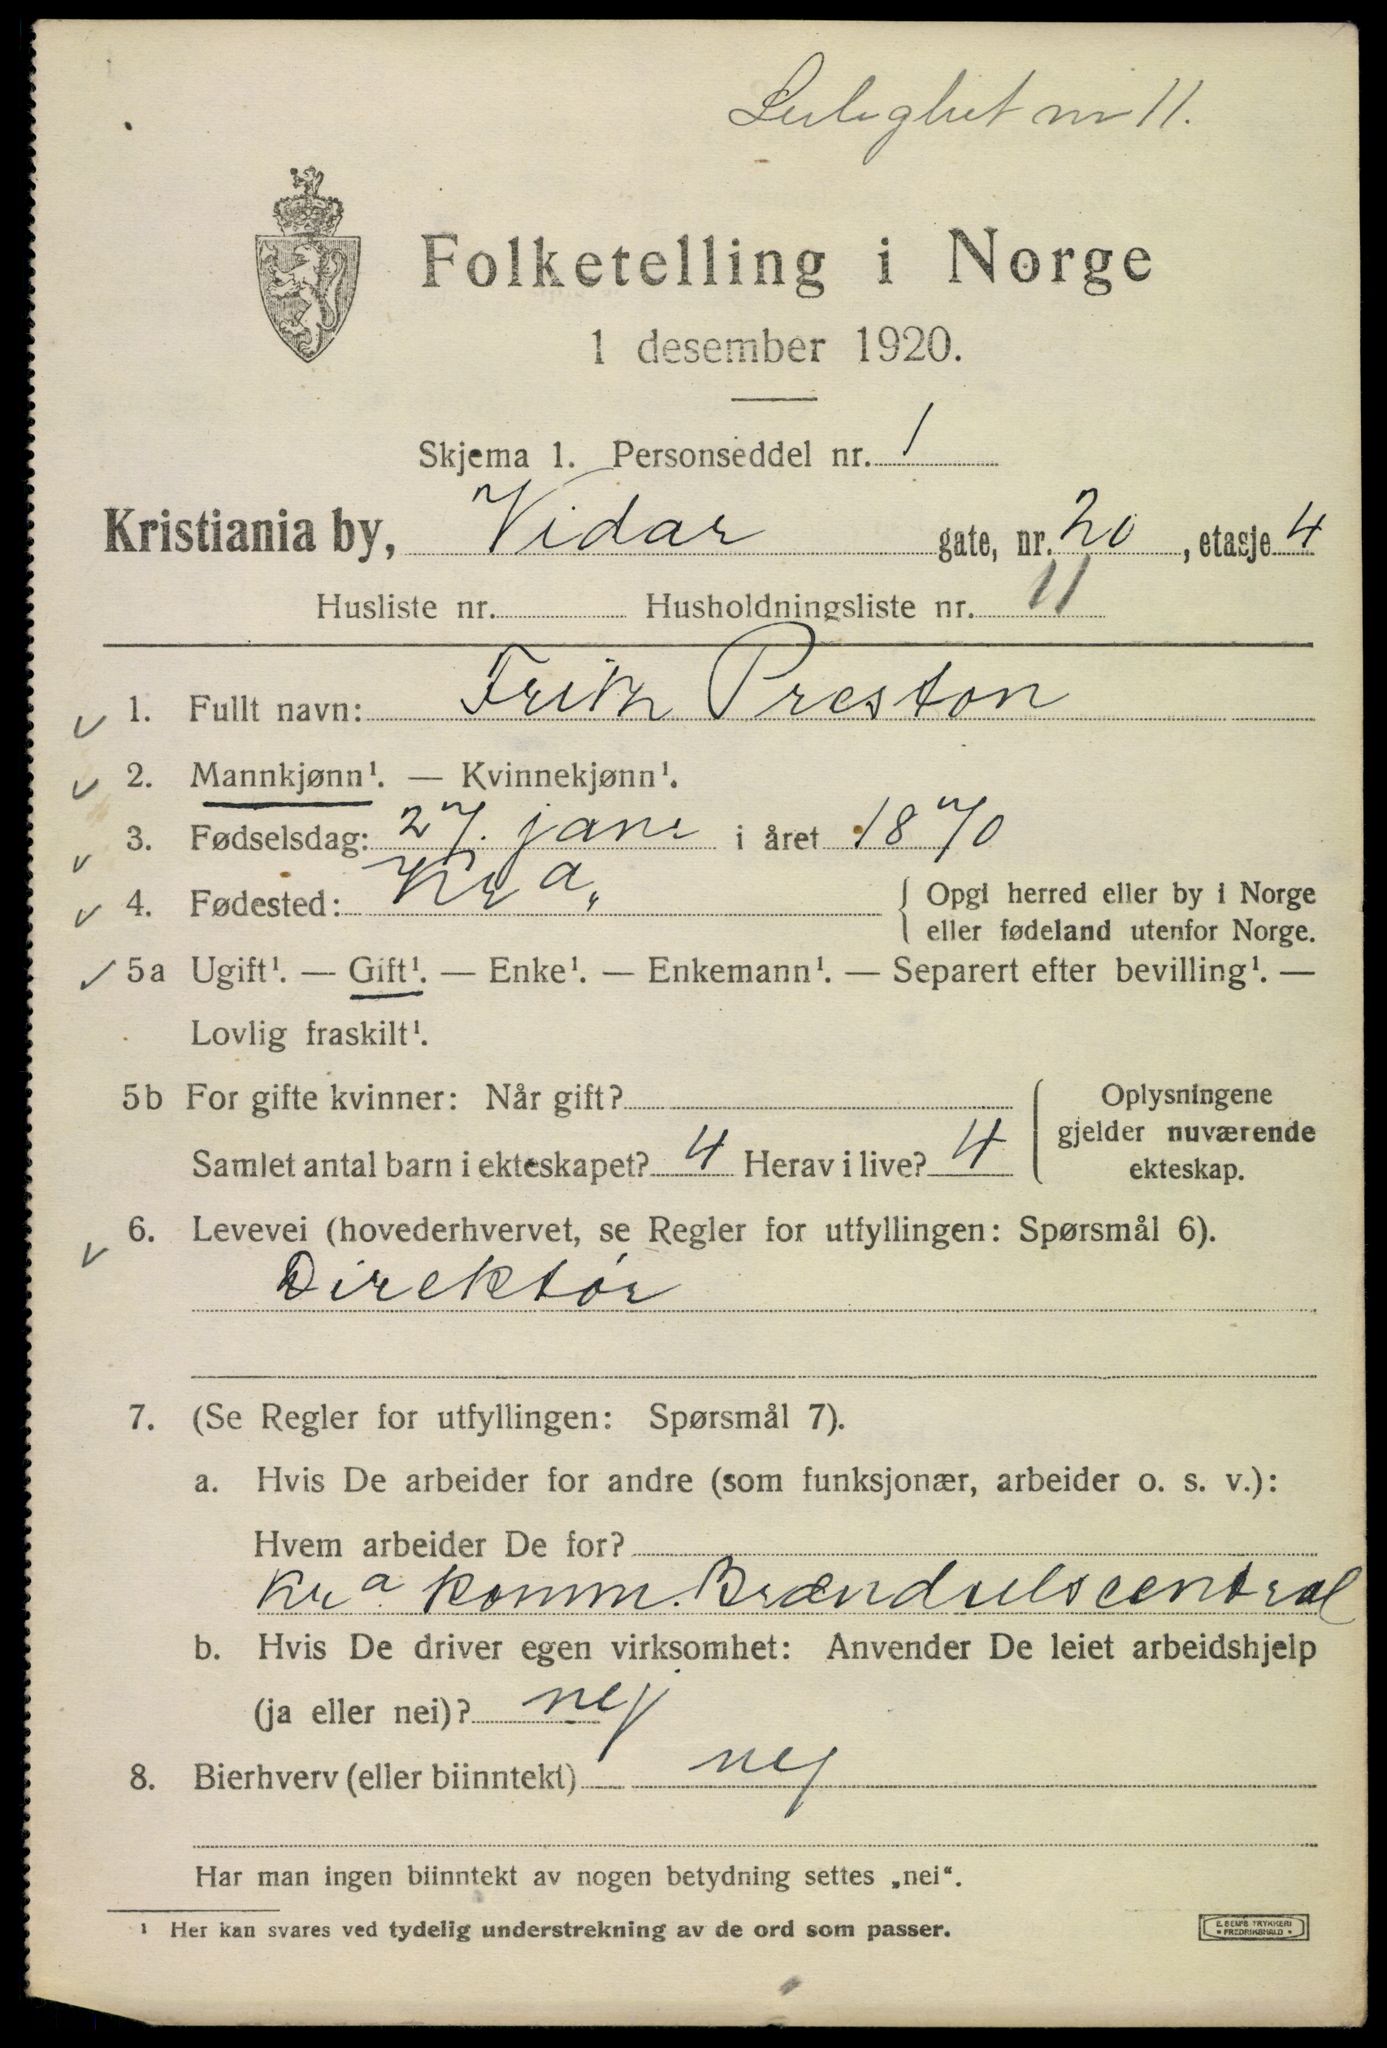 Leilighet nr 11.
Folketelling i Norge
1 desember 1920.
Skjema 1. Personseddel nr. 1
Kristiania by, Vidar gate, nr. 20, etasje 4
Husliste nr. Husholdningsliste nr. 11
1. Fullt navn: Fritz Preston
2. Mannkjønn¹. — Kvinnekjønn¹.
3. Fødselsdag: 27. janr i året 1870
4. Fødested: Kra, { Opgi herred eller by i Norge
eller fødeland utenfor Norge.
5a Ugift¹. — Gift¹. — Enke¹. — Enkemann¹. — Separert efter bevilling¹. —
Lovlig fraskilt¹.
5b For gifte kvinner: Når gift? { Oplysningene
gjelder nuværende
ekteskap.
Samlet antal barn i ekteskapet? 4 Herav i live? 4
6. Levevei (hovederhvervet, se Regler for utfyllingen: Spørsmål 6).
Direktør
7. (Se Regler for utfyllingen: Spørsmål 7).
a. Hvis De arbeider for andre (som funksjonær, arbeider o. s. v.):
Hvem arbeider De for?
Kra komm. Brændselscentral
b. Hvis De driver egen virksomhet: Anvender De leiet arbeidshjelp
(ja eller nei)? nej
8. Bierhverv (eller biinntekt) nej
Har man ingen biinntekt av nogen betydning settes „nei“.
¹ Her kan svares ved tydelig understrekning av de ord som passer.
E. SEM'S TRYKKERI
• FREDRIKSHALD •